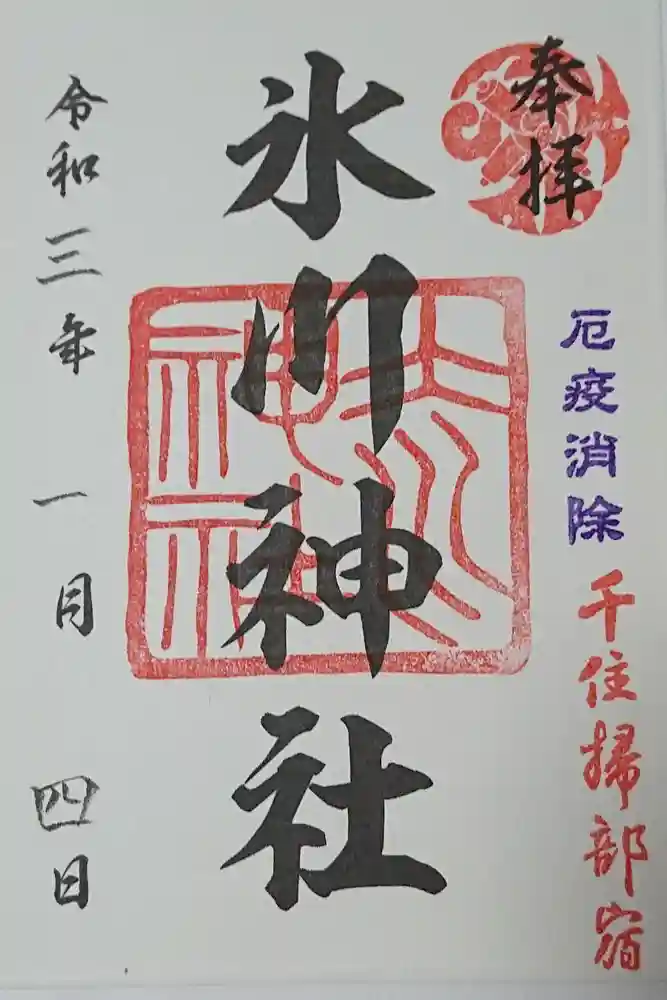 奉拝
厄疫消除
千住掃部宿
氷川神社
令和三年 一月 四日